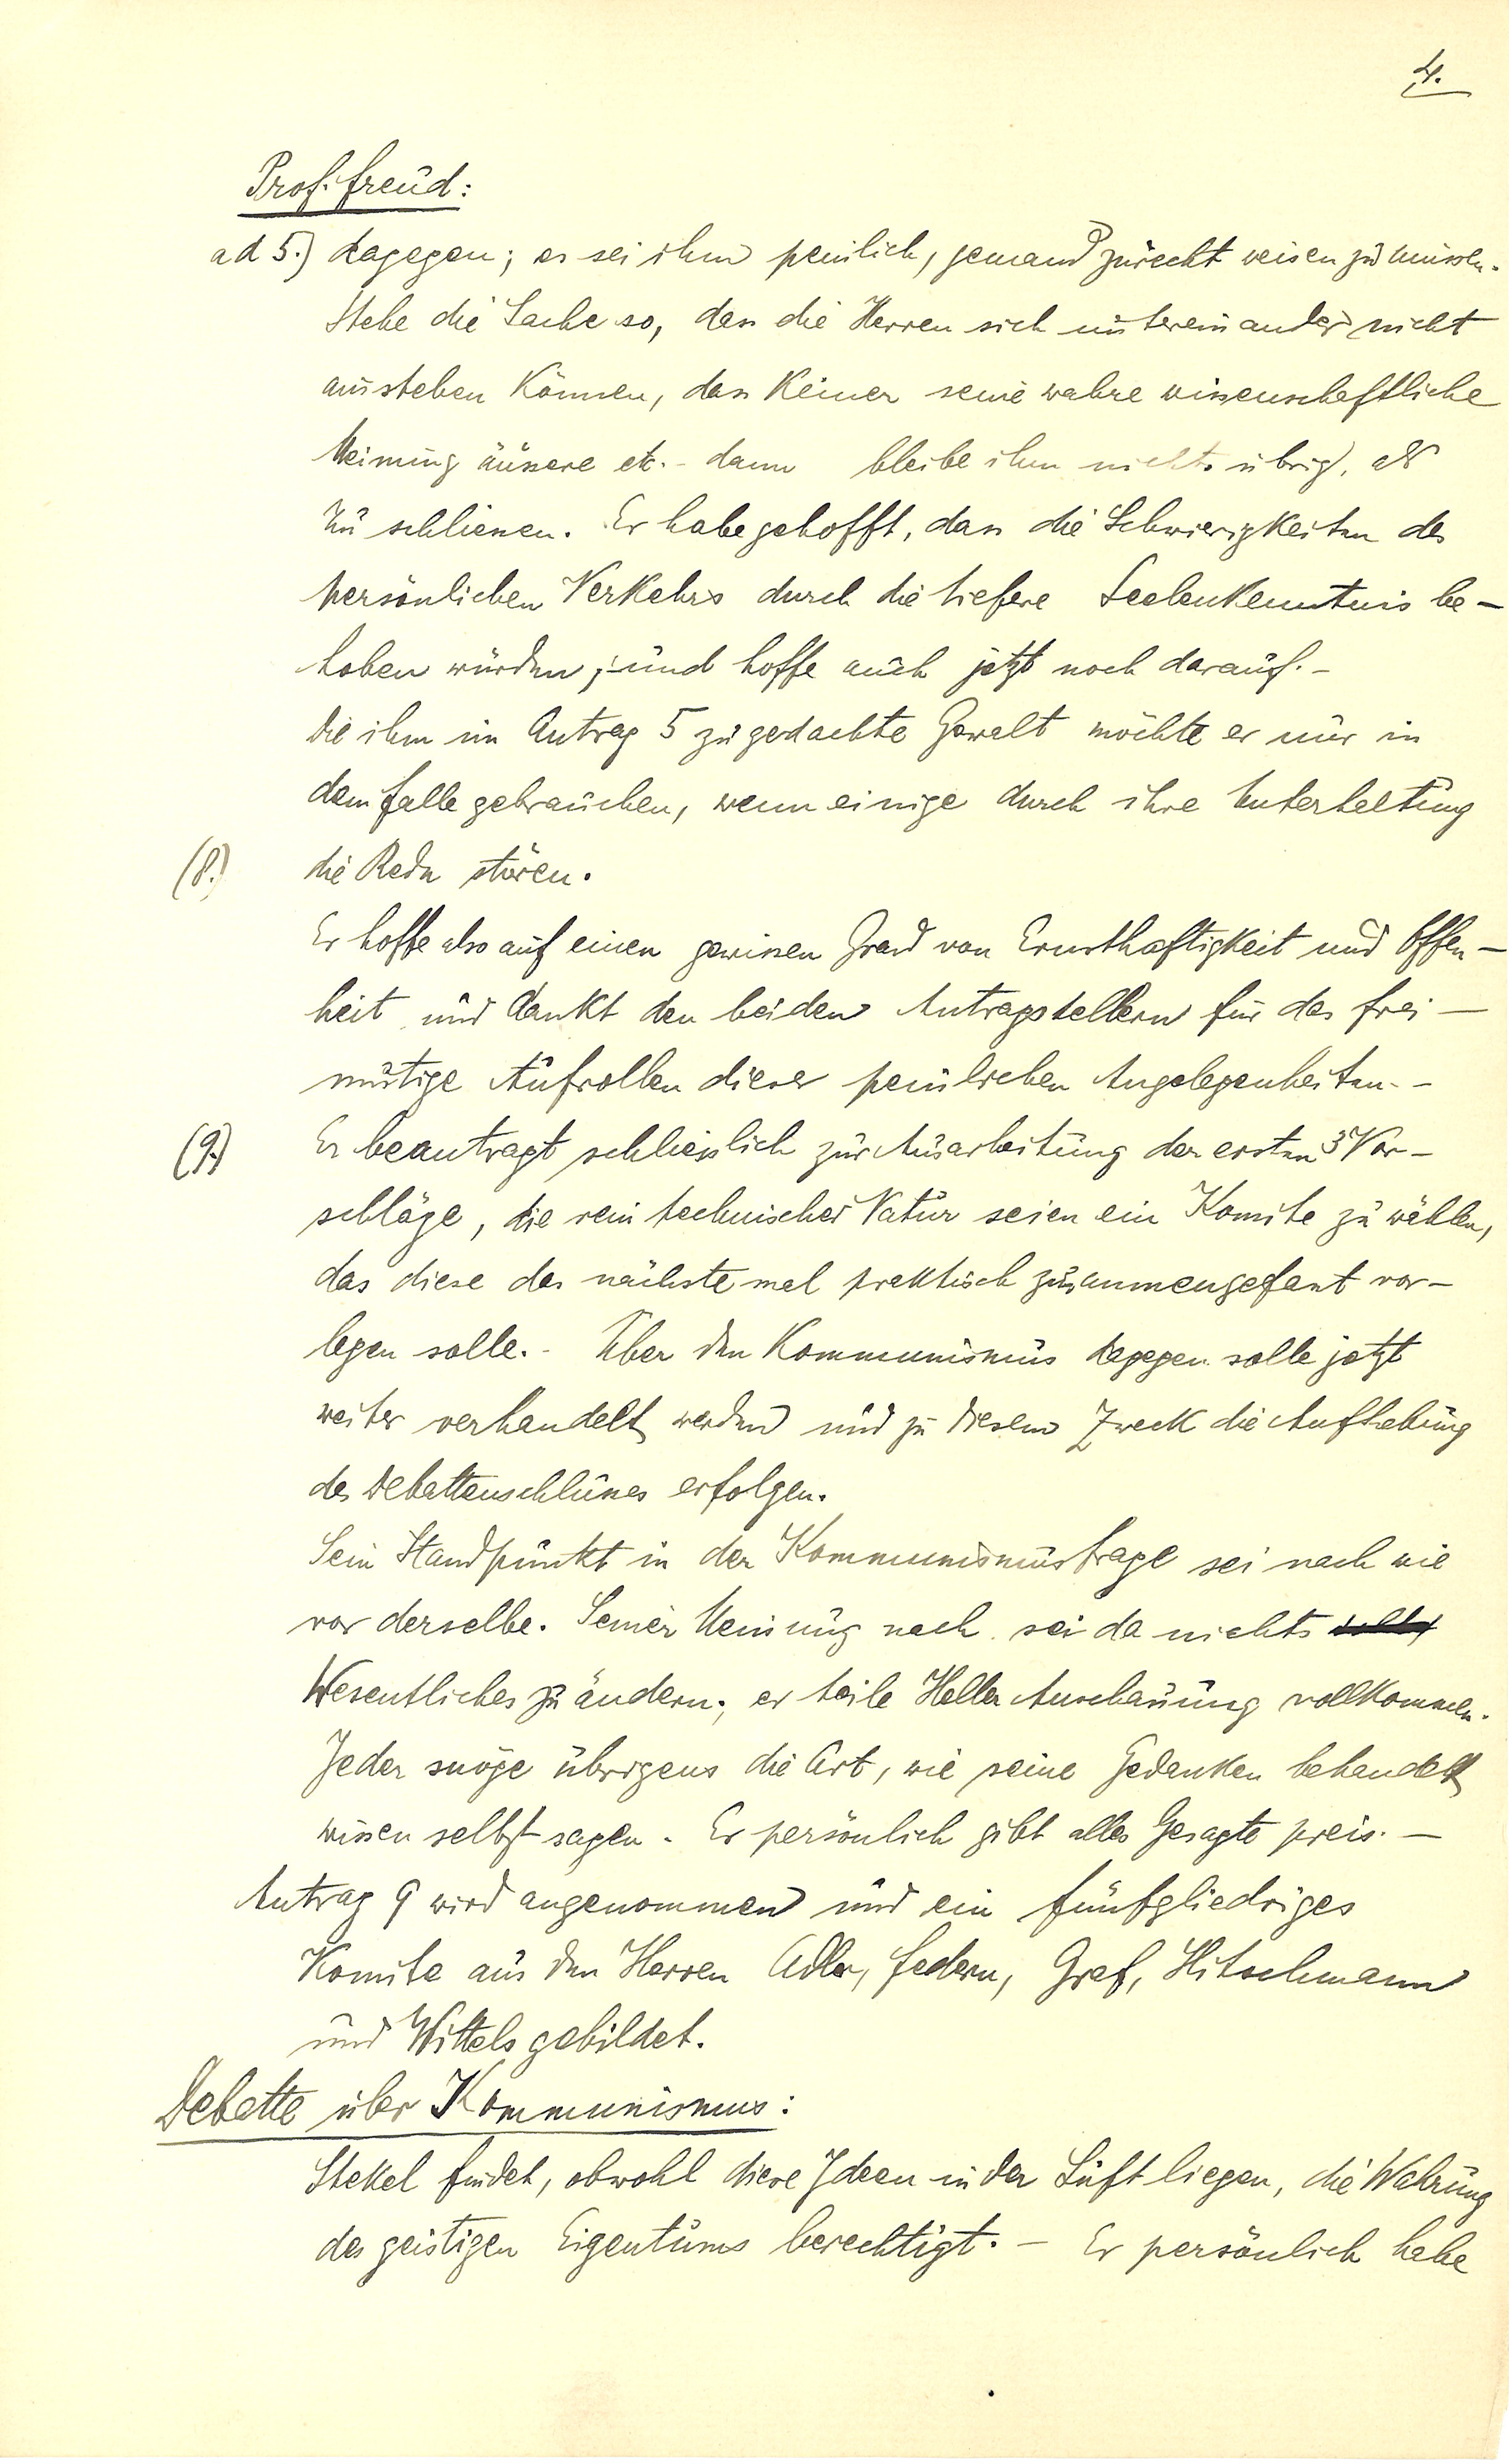 4.
Prof. Freud:
ad 5.) dagegen; es sei ihm peinlich, jemand zurecht weisen zu müssen.
Stehe die Sache so, dass die Herren sich untereinander nicht
ausstehen können, dass keiner seine wahre wissenschaftliche
Meinung äussere etc. - dann bleibe ihm nichts übrig, als
zu schliessen. Er habe gehofft, dass die Schwierigkeiten des
persönlichen Verkehrs durch die tiefere Seelenkenntnis be-
hoben würden; und hoffe auch jetzt noch darauf. -
Die ihm im Antrag 5 zugedachte Gewalt möchte er nur in
dem Falle gebrauchen, wenn einige durch ihre Unterhaltung
(8.) die Redn stören.
Er hoffe also auf einen gewissen Grad von Ernsthaftigkeit und Offen-
heit und dankt den beiden Antragstellern für das frei-
mütige Aufrollen dieser peinlichen Angelegenheiten. -
(9.) Er beantragt schliesslich zur Ausarbeitung der ersten 3 Vor-
schläge, die rein technischer Natur seien ein Komite zu wählen,
das diese das nächste mal praktisch zusammengefasst vor-
legen solle. - Über den Kommunismus dagegen solle jetzt
weiter verhandelt werden und zu diesem Zweck die Aufhebung
des Debattenschlusses erfolgen.
Sein Standpunkt in der Kommunismusfrage sei nach wie
vor derselbe. Seiner Meinung nach sei da nichts
Wesentliches zu ändern; er teile Heller Anschauung vollkommen.
Jeder möge übrigens die Art, wie seine Gedanken behandelt
wissen selbst sagen. Er persönlich gibt alles Gesagte preis. -
Antrag 9 wird angenommen und ein fünfgliedriges
Komite aus den Herren Adler, Federn, Graf, Hitschmann
und Wittels gebildet.
Debatte über Kommunismus:
Stekel findet, obwohl diese Ideen in der Luft liegen, die Wahrung
des geistigen Eigentums berechtigt. - Er persönlich habe